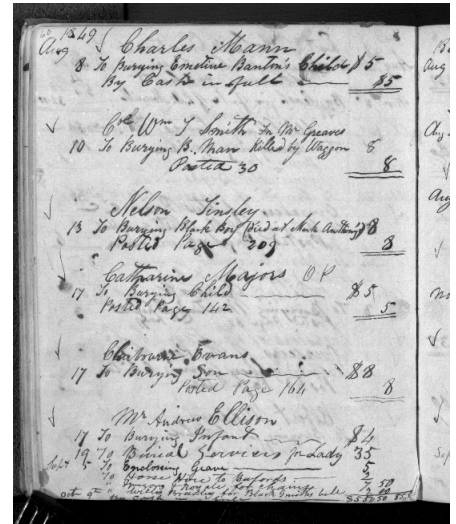 60 1849
Aug Charles Mann
8 To Burying Emetine Banton's Child $5
By Cash in full $5
Col Wm J Smith for Mr Greaves
10 To Burying B. Man Killed by Waggon 8
Posted 30 8
Nelson Tinsley
13 To Burying Black Boy (Died at Mark Anthony) $8
Posted Page 209 8
Catharine Majors OP
17 To Burying Child $5
Posted Page 142 5
Evans
17 To Burying Son $8
Posted Page 164 8
Mr Andrew Ellison
17 To Burying Infant $4
19 To Burial Services for Lady 35
Sept 5 To Enclosing Grave 5
To Horse Hire to Bufords
50
Oct 9th for Black Smiths bill